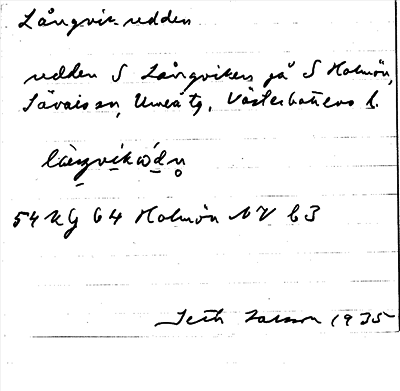 Långvik-udden
udden S Långviken på S Holmön,
Sävars sn, Umeå tg, Västerbottens l.
54 KG 64 Holmön NV b3
1935